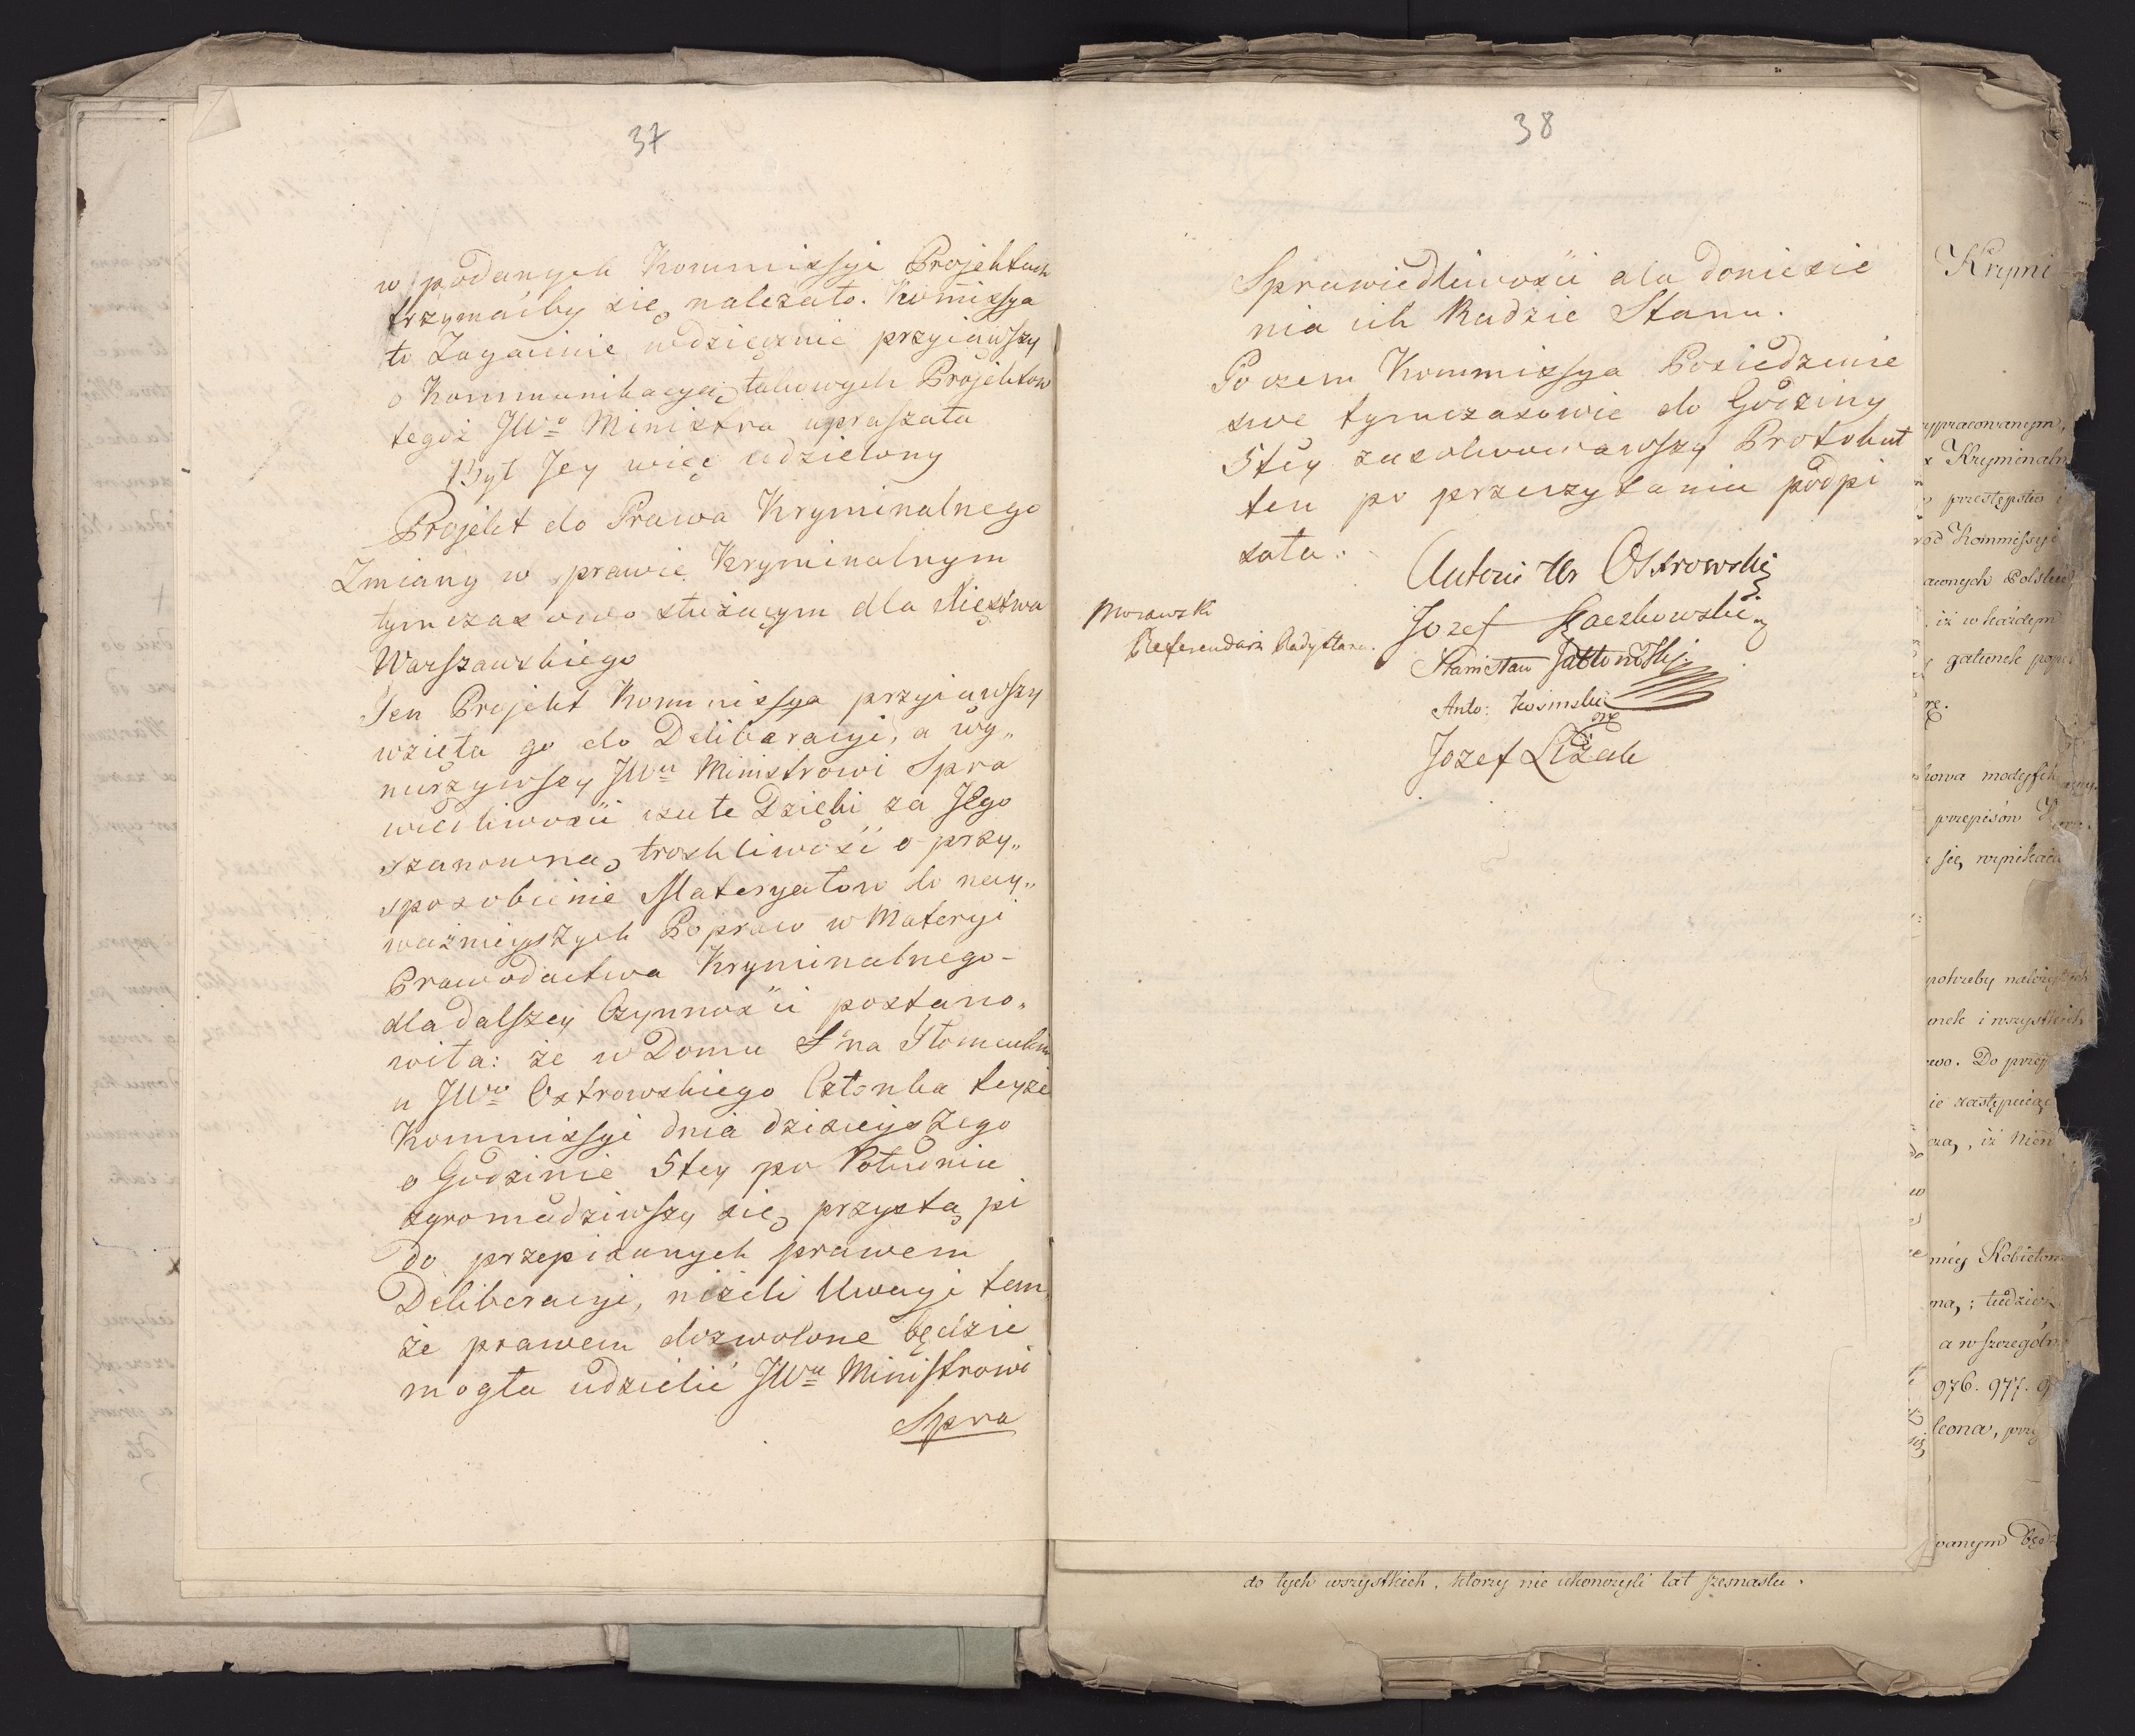 37
w podanych Kommissyi Projektach
trzymaćby się należało. Kom̄issya
to Zagaienie wdzięcznie przyiąwszy
o Kommunikacyą takowych Projektow
tegoż JWo Ministra upraszała
Był Jey więc udzielony
Projekt do Prawa Kryminalnego
Zmiany w prawie Kryminalnym
tymczasowo służącym dla Xięstwa
Warszawskiego
Ten Projekt Kommissya przyiąwszy
wzięła go do Deliberacyi, a wy„
nurzywszy JWu Ministrowi Spra
wiedliwości czułe Dzięki za Jego
szanowną troskliwość o przy„
sposobienie Materyałow do nay„
ważnieyszych Popraw w Materyi
Prawodactwa Kryminalnego -
dla dalszey Czynności postano„
wiła: że w Domu
u JWo Ostrowskiego Członka teyże
Kommissyi dnia dzisieyszego
o Godzinie 5tey po Południu
zgromadziwszy się, przystąpi
do przepisanych prawem
Deliberacyi, niżeli Uwagi tem„
że prawem dozwolone będzie
mogła udzielić JWu Ministrowi
Spra
38
Sprawiedliwości dla doniesie
nia ich Radzie Stanu.
Poczem Kommissya Posiedzenie
swe tymczasowie do Godziny
5tey zasolwowawszy Protokuł
ten po przeczytaniu podpi
sała:
Antoni Hr Ostrowski
Morawski
Referendarz Rady Stanu.
Jozef Kaczkowski
Stanisław Jabłonowski
Anto: Kosinski
Jozef
Krymi
wypracowanym,
Kryminaln
przestępstw
Kommissyi
Polskie
iż w każdem
gatunek
przepisów
się wynikaią
potrzeby
i wszystkich
Do
iż
mey Kobietom
a w szczególn
976. 977.
leona,
wanym będ
do tych wszystkich, ktorzy nie ukonczyli lat szesnastu.